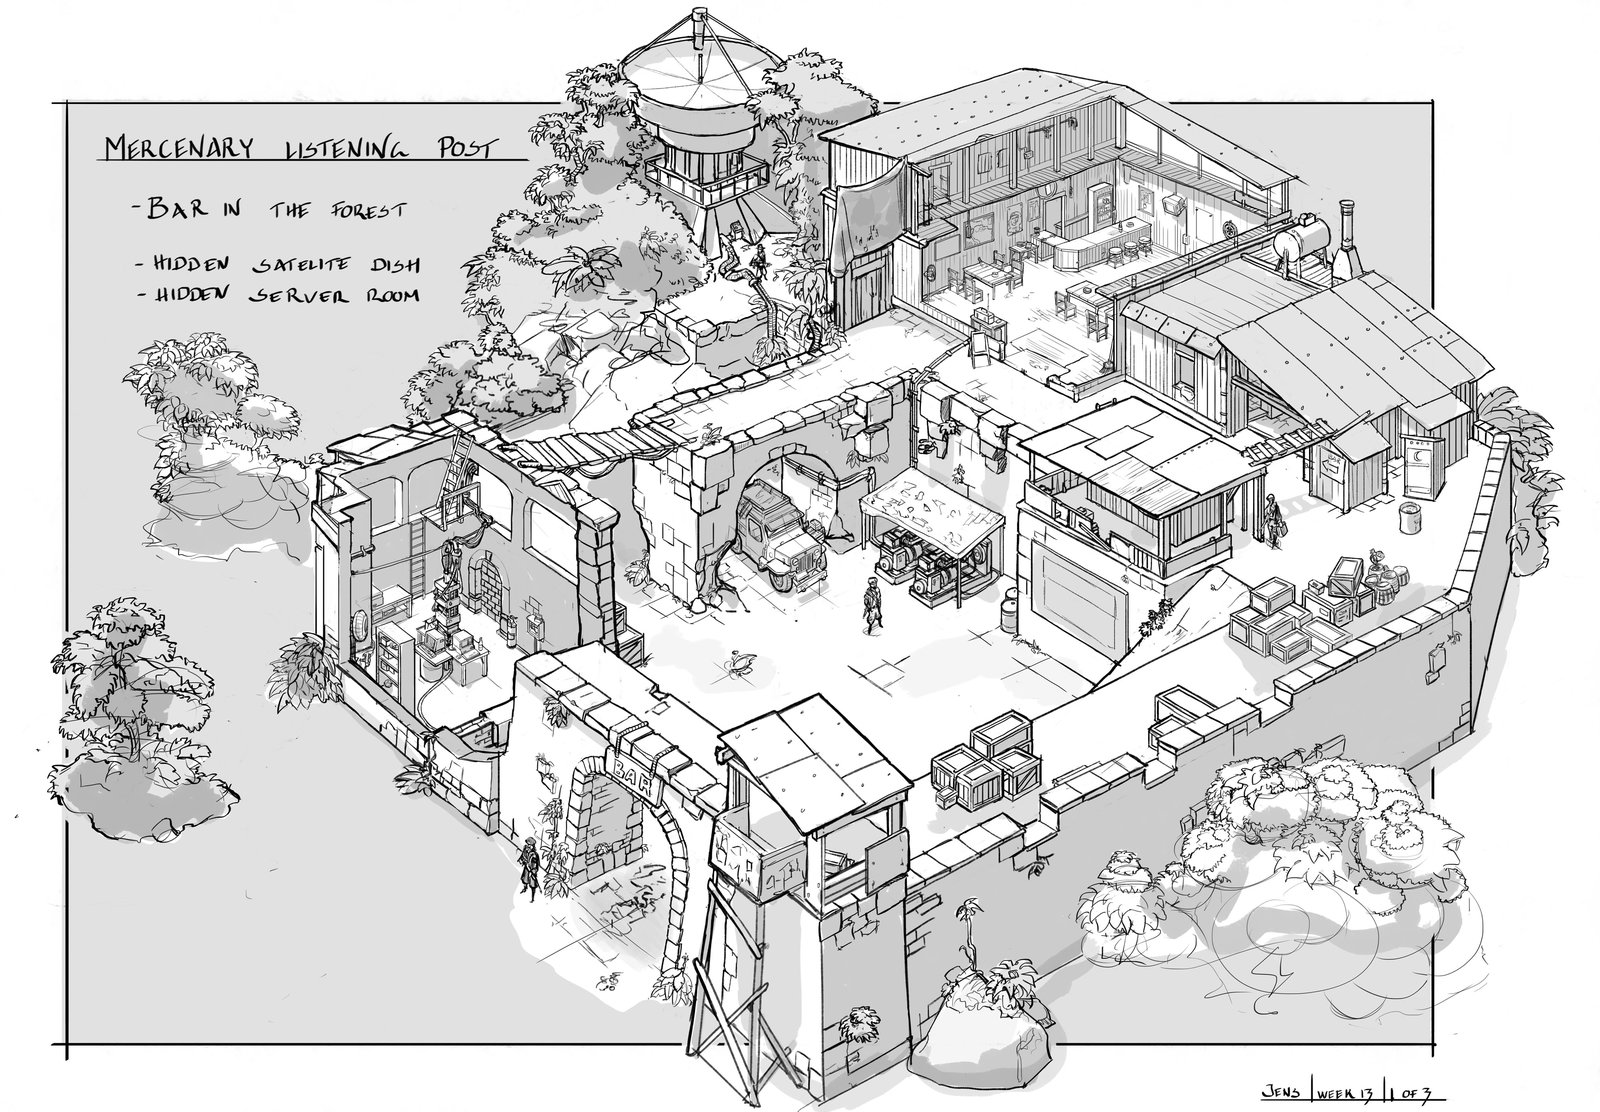 MERCENARY LISTENING POST
- BAR IN THE FOREST
- HIDDEN SATELITE DISH
- HIDDEN SERVER ROOM
BAR
JENS | WEEK 13 | 1 OF 3